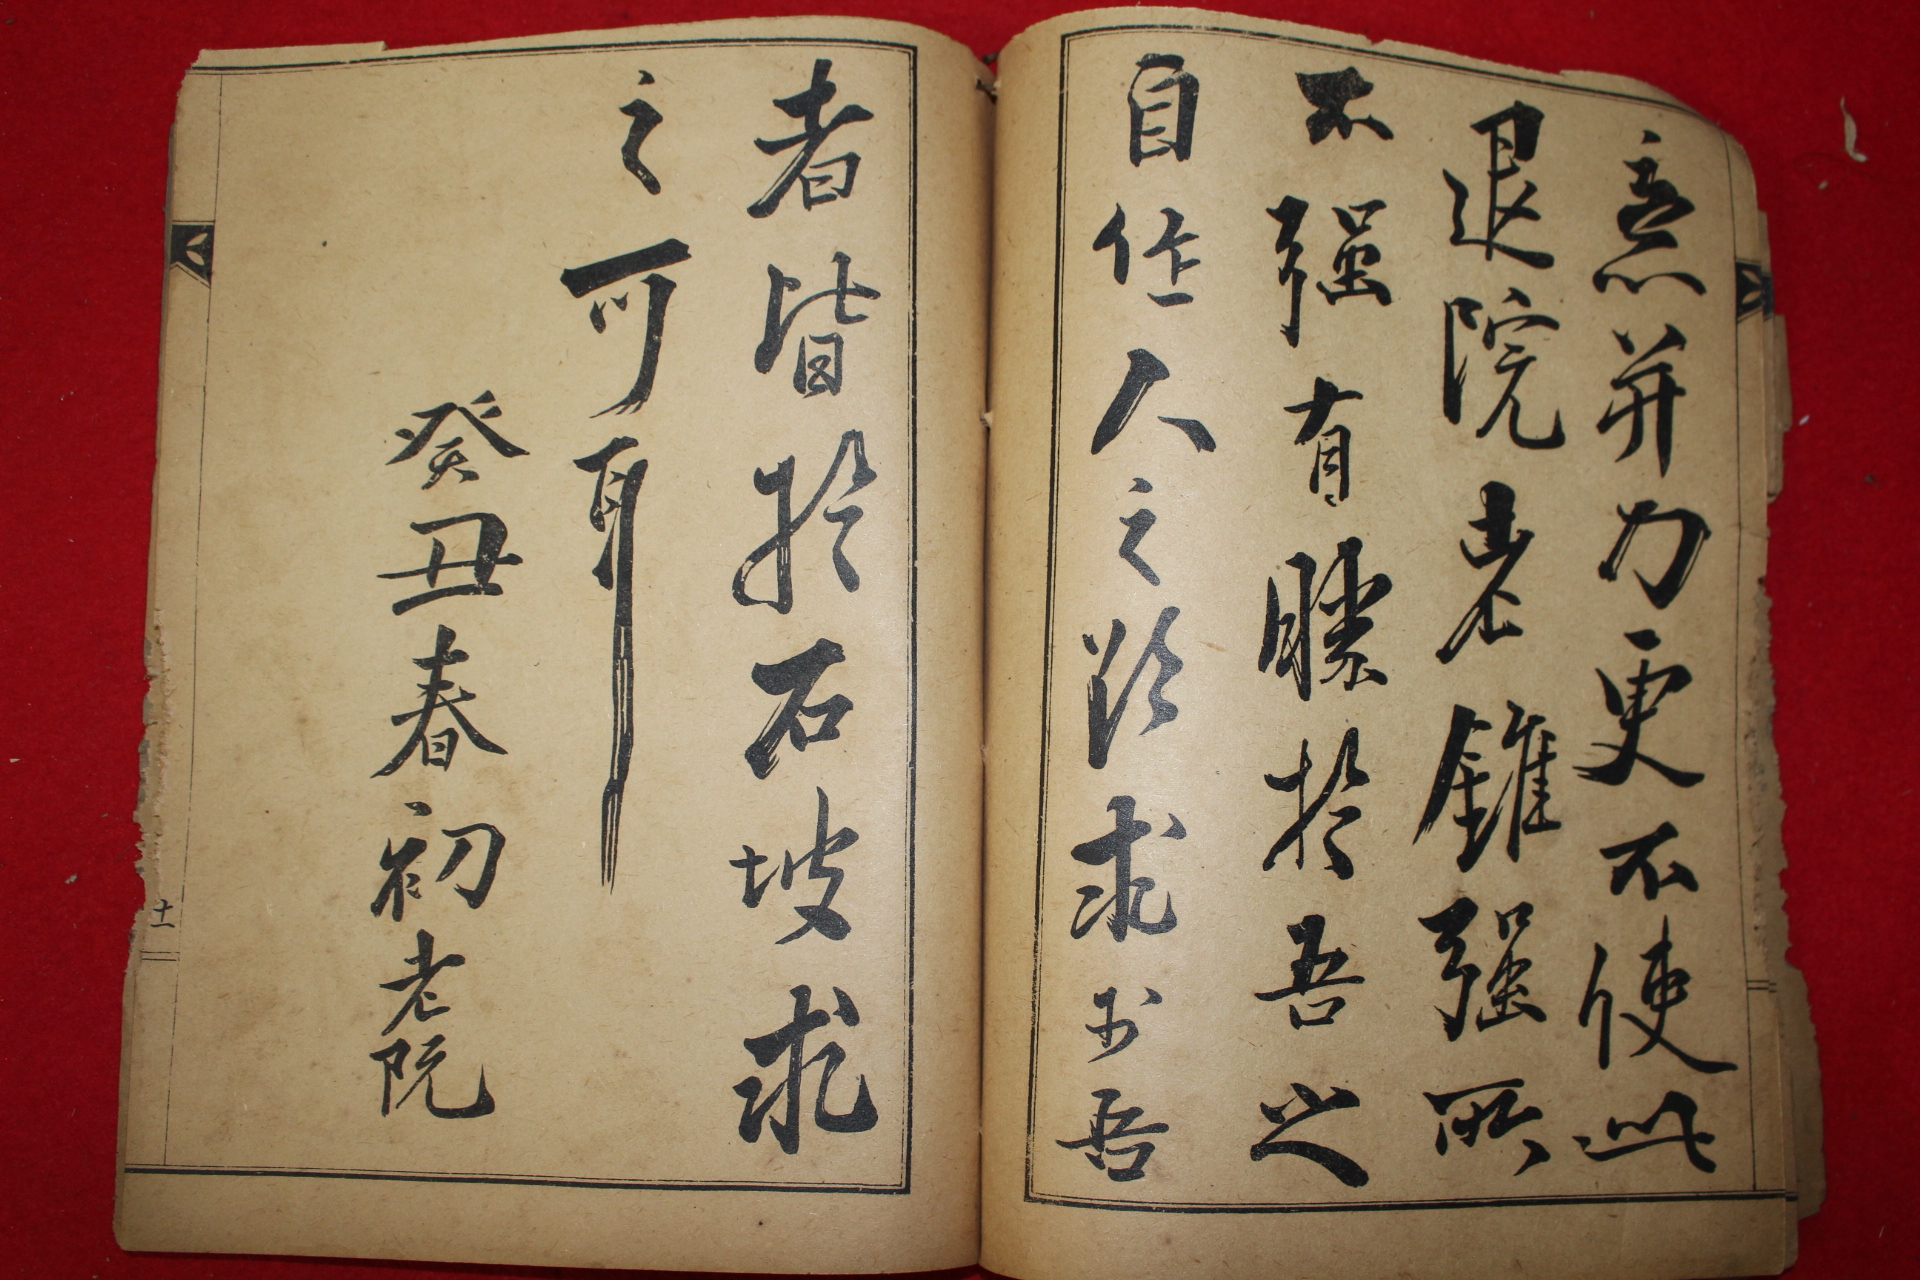 意并力更不使此
退院老錐强所
不强有勝於吾之
自作人之欲求於吾
者皆於石坡求
之可耳
癸丑春初老阮
十一